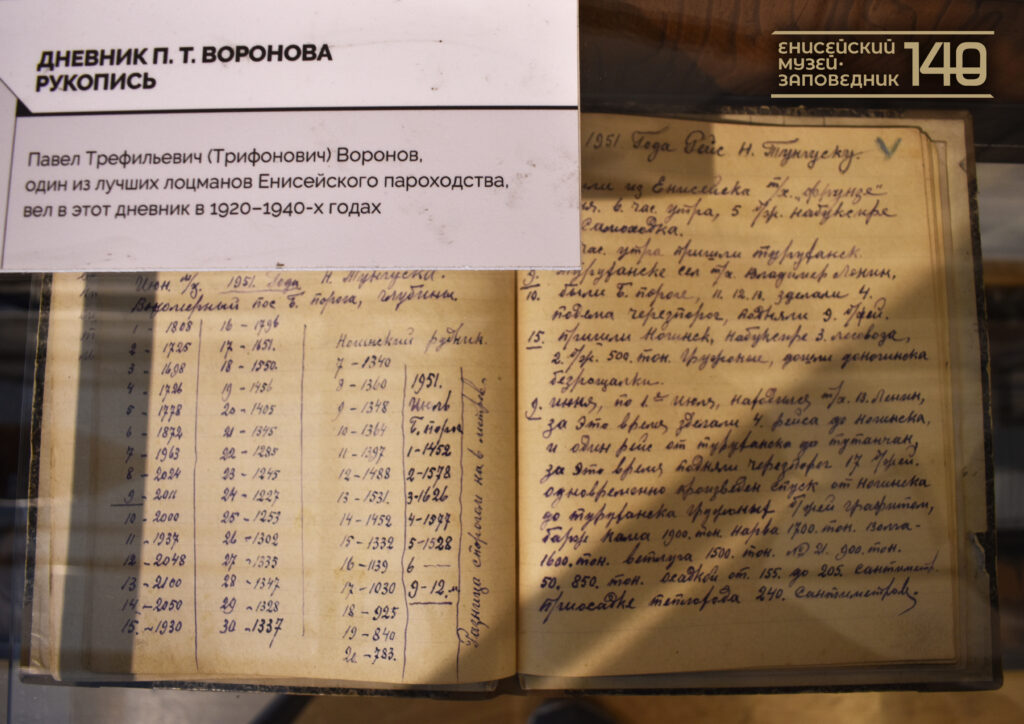 ДНЕВНИК П. Т. ВОРОНОВА
РУКОПИСЬ
Павел Трефильевич (Трифонович) Воронов,
один из лучших лоцманов Енисейского пароходства,
вел в этот дневник в 1920–1940-х годах
ЕНИСЕЙСКИЙ
МУЗЕЙ-
ЗАПОВЕДНИК
140
Июн. м/ц. 1951. Года Н. Тунгуска.
Водомерный пос Б. порога, глубины.
1 - 1808
2 - 1725
3 - 1698
4 - 1726
5 - 1778
6 - 1872
7 - 1963
8 - 2024
9 - 2011
10 - 2000
11 - 1937
12 - 2048
13 - 2100
14 - 2050
15. - 1930
16 - 1796
17 - 1651.
18 - 1550.
19 - 1456
20 - 1405
21 - 1345
22 - 1285
23 - 1245
24 - 1227
25 - 1253
26 - 1302
27 - 1335
28 - 1347
29 - 1328
30 - 1337
Ногинский рудник.
7 - 1340
9 - 1348
10 - 1364
11 - 1397
12 - 1488
13 - 1531.
14 - 1452
15 - 1332
16 - 1139
17 - 1030
18 - 925
19 - 840
20 - 783.
1951.
Июль
Б. порог
1 - 1452
2 - 1578
3 - 1626
4 - 1577
5 - 1528
6 —
9 - 12. м
Разница спорогом на 6 митров.
1951 Года Рейс Н. Тунгуску.
из Енисейска т/х. "Фрунзе"
6. час. утра, 5 набуксире
самоходка.
час. утра пришли туруханск.
9. туруханске сел т/х. Владимер Ленин,
10. были Б. пороге, 11. 12. 13. зделали 4.
подъема черезпорог, подняли 9.
15. пришли Ногинск, набуксире 3. лесовоза,
2. 500. тон. груженые, дошли доногинска
9. июня, по 1.ое июля, т/х. В. Ленин,
за это время зделали 4. рейса до ногинска,
и один рейс от туруханска до тутанчан,
за это время подняли черезпорог 17.
одновременно произведен спуск от ногинска
до туруханска груженых графитом,
барж кама 1900. тон. нарва 1700. тон. Волга-
1600. тон. ветлуга 1500. тон. 21. 900. тон.
50. 850. тон. осадкой от. 155. до 205. сантиметр.
приосадке теплохода 240. сантиметров.